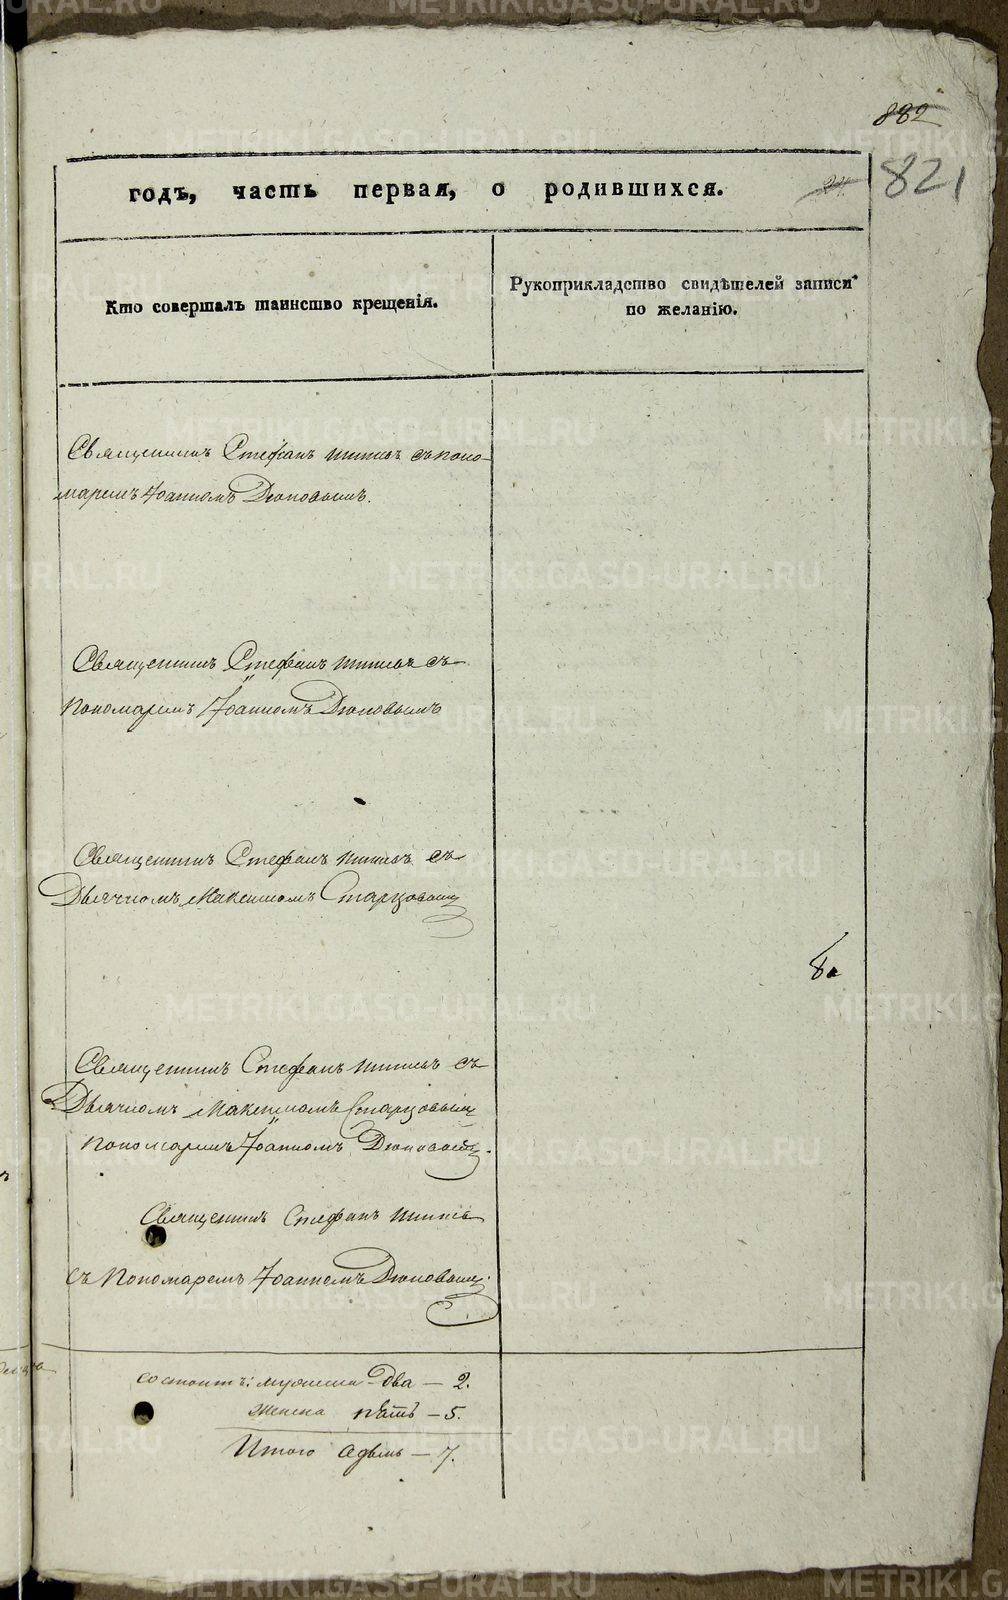 882
821
годъ, часть первая, о родившихся.
Кто совершалъ таинство крещенія.
Рукоприкладство свидѣтелей записи по желанію.
Священникъ Стефанъ съ поно-
маремъ Іоанномъ Дюповымъ.
Священникъ Стефанъ съ
Пономаремъ Іоанномъ Дюповымъ
Священникъ Стефанъ съ
Дьячкомъ Максимомъ Старцовымъ
Священникъ Стефанъ съ
Дьячкомъ Максимомъ Старцовымъ
Пономаремъ Іоанномъ Дюповымъ.
Священникъ Стефанъ
съ Пономаремъ Іоанномъ Дюповымъ.
состоитъ: мужеска два — 2.
женска пять — 5.
Итого седмь — 7.
METRIKI.GASO-URAL.RU